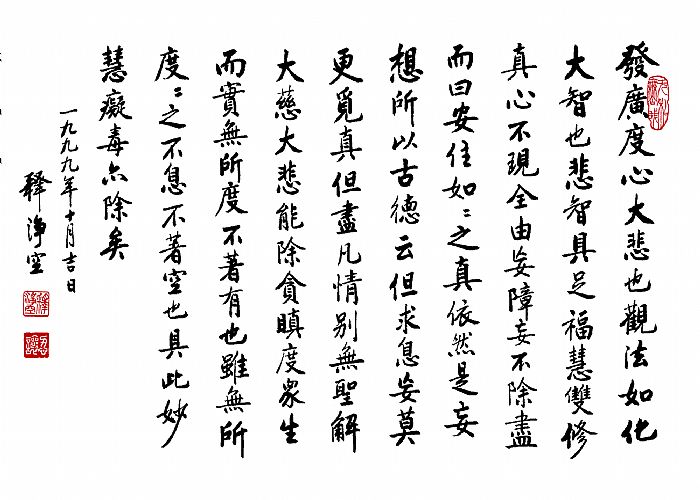 發廣度心大悲也觀法如化
大智也悲智具足福慧雙修
真心不現全由妄障妄不除盡
而曰安住如〻之真依然是妄
想所以古德云但求息妄莫
更覓真但盡凡情別無聖解
大慈大悲能除貪瞋度眾生
而實無所度不著有也雖無所
度〻之不息不著空也具此妙
慧癡毒亦除矣
一九九九年十月吉日
釋淨空